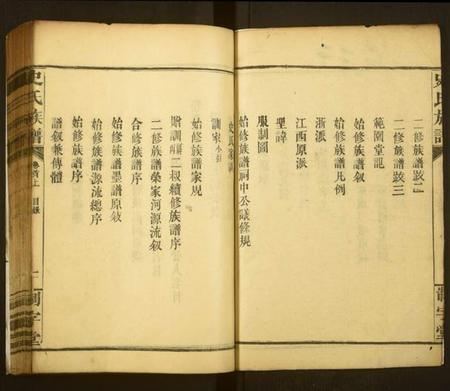 二修族譜跋二
二修族譜跋三
範圍堂記
始修族譜敘
始修族譜凡例
浙派
江西原派
聖諱
服制圖
始修族譜祠中公議條規
史氏家訓
訓家小引
始修族譜家規
二叔續修族譜序
二修族譜榮家河源流叙
合修族譜序
始修族譜墨譜原敍
始修族譜源流總序
始修族譜序
譜叙兼傳體
史氏族譜
卷首上 目錄
一
史氏族譜